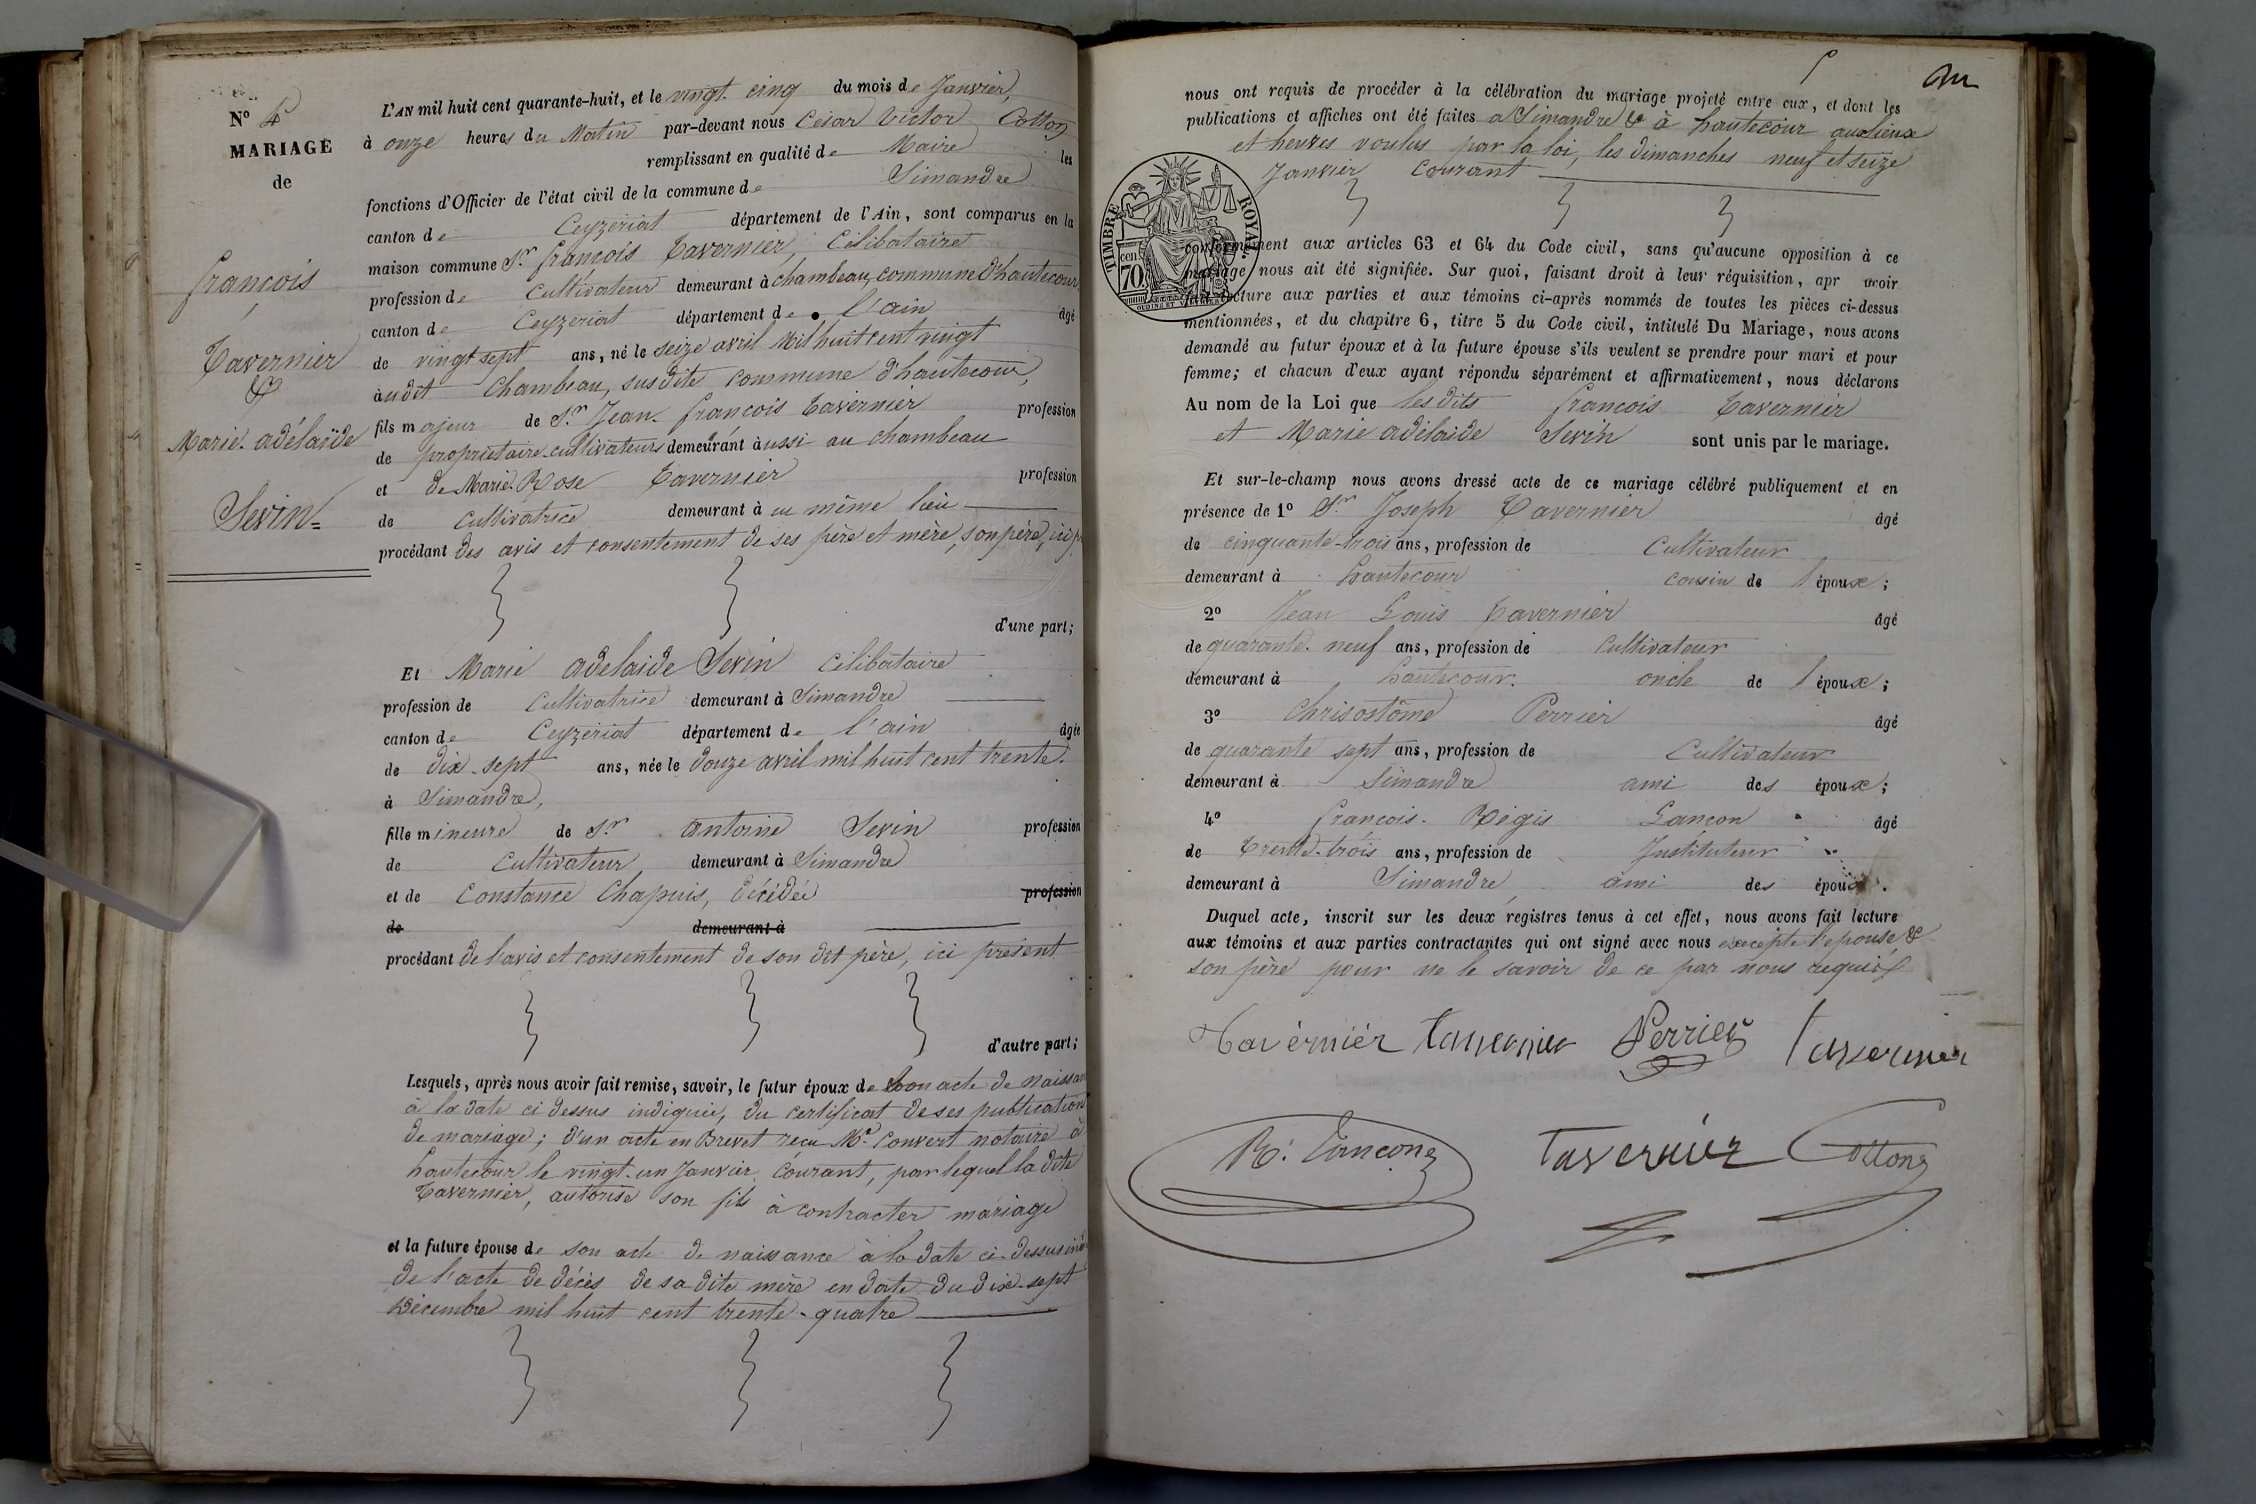 Nº 4
MARIAGE
de
françois
Tavernier
&
Marie-adélaïde
Sevin=
L'AN mil huit cent quarante-huit, et le vingt-cinq du mois de Janvier,
à onze heures du Matin par-devant nous César Victor Cotton
remplissant en qualité de Maire les
fonctions d'Officier de l'état civil de la commune de Simandre
canton de Ceyzeriat département de l'Ain, sont comparus en la
maison commune Sr. françois Tavernier, Célibataire
profession de Cultivateur demeurant à chambeau, commune d'hautecour,
canton de Ceyzeriat département de l'ain âgé
de vingt sept ans, né le seize avril Mil huit cent vingt
à udit Chambeau, susdite commune d'hautecour,
fils majeur de Sr. Jean-françois Tavernier profession
de propriétaire-cultivateur demeurant àussi au chambeau
et de Marie-Rose Tavernier profession
de cultivatrice demeurant à u même lieu
procédant des avis et consentement de ses père et mère, son père, ici
d'une part;
Et Marie adelaide Sevin Célibataire
profession de Cultivatrice demeurant à Simandre
canton de Ceyzériat département de l'ain âgée
de dix-sept ans, née le douze avril mil huit cent trente.
à Simandre,
fille mineure de Sr. antoine Sevin profession
de Cultivateur demeurant à Simandre
et de Constance Chapuis, décédée profession
de demeurant à
procédant de l'avis et consentement de son dit père, ici présent
d'autre part;
Lesquels, après nous avoir fait remise, savoir, le futur époux de son acte de naissan
à la date ci dessus indiquée, du certificat de ses publication
de mariage; d'un acte en Brevet reçu Me. Convert notaire à
hautecour le vingt-un Janvier courant, par lequel la dite
Tavernier, autorise son fils à contracter mariage
et la future épouse de son acte de naissance à la date ci-dessus ind
de l'acte de décès de sa dite mère en date du dix-sept
Décembre mil huit cent trente-quatre
nous ont requis de procéder à la célébration du mariage projeté entre eux, et dont les
publications et affiches ont été faites a Simandre & à hautecour aux lieux
et heures voulus par la loi, les dimanches neuf et seize
Janvier courant
TIMBRE ROYAL
70 cen
conformément aux articles 63 et 64 du Code civil, sans qu'aucune opposition à ce
mariage nous ait été signifiée. Sur quoi, faisant droit à leur réquisition, apr avoir
lecture aux parties et aux témoins ci-après nommés de toutes les pièces ci-dessus
mentionnées, et du chapitre 6, titre 5 du Code civil, intitulé Du Mariage, nous avons
demandé au futur époux et à la future épouse s'ils veulent se prendre pour mari et pour
femme; et chacun d'eux ayant répondu séparément et affirmativement, nous déclarons
Au nom de la Loi que lesdits françois Tavernier
et Marie adélaide Sevin sont unis par le mariage.
Et sur-le-champ nous avons dressé acte de ce mariage célébré publiquement et en
présence de 1º Sr. Joseph Tavernier âgé
de cinquante-trois ans, profession de Cultivateur
demeurant à hautecour cousin de l'époux;
2º Jean Louis Tavernier âgé
de quarante-neuf ans, profession de Cultivateur
demeurant à hautecour. oncle de l'époux;
3º Chrisostôme Perrier âgé
de quarante sept ans, profession de Cultivateur
demeurant à Simandre ami des époux;
4º françois-Régis Lançon âgé
de trente-trois ans, profession de Instituteur
demeurant à Simandre ami des époux.
Duquel acte, inscrit sur les deux registres tenus à cet effet, nous avons fait lecture
aux témoins et aux parties contractantes qui ont signé avec nous excepté l'epouse &
son père pour ne le savoir de ce par nous requis
Tavérniér Tavernier Perrier Tavernier
R. Lançon Tavernier Cotton